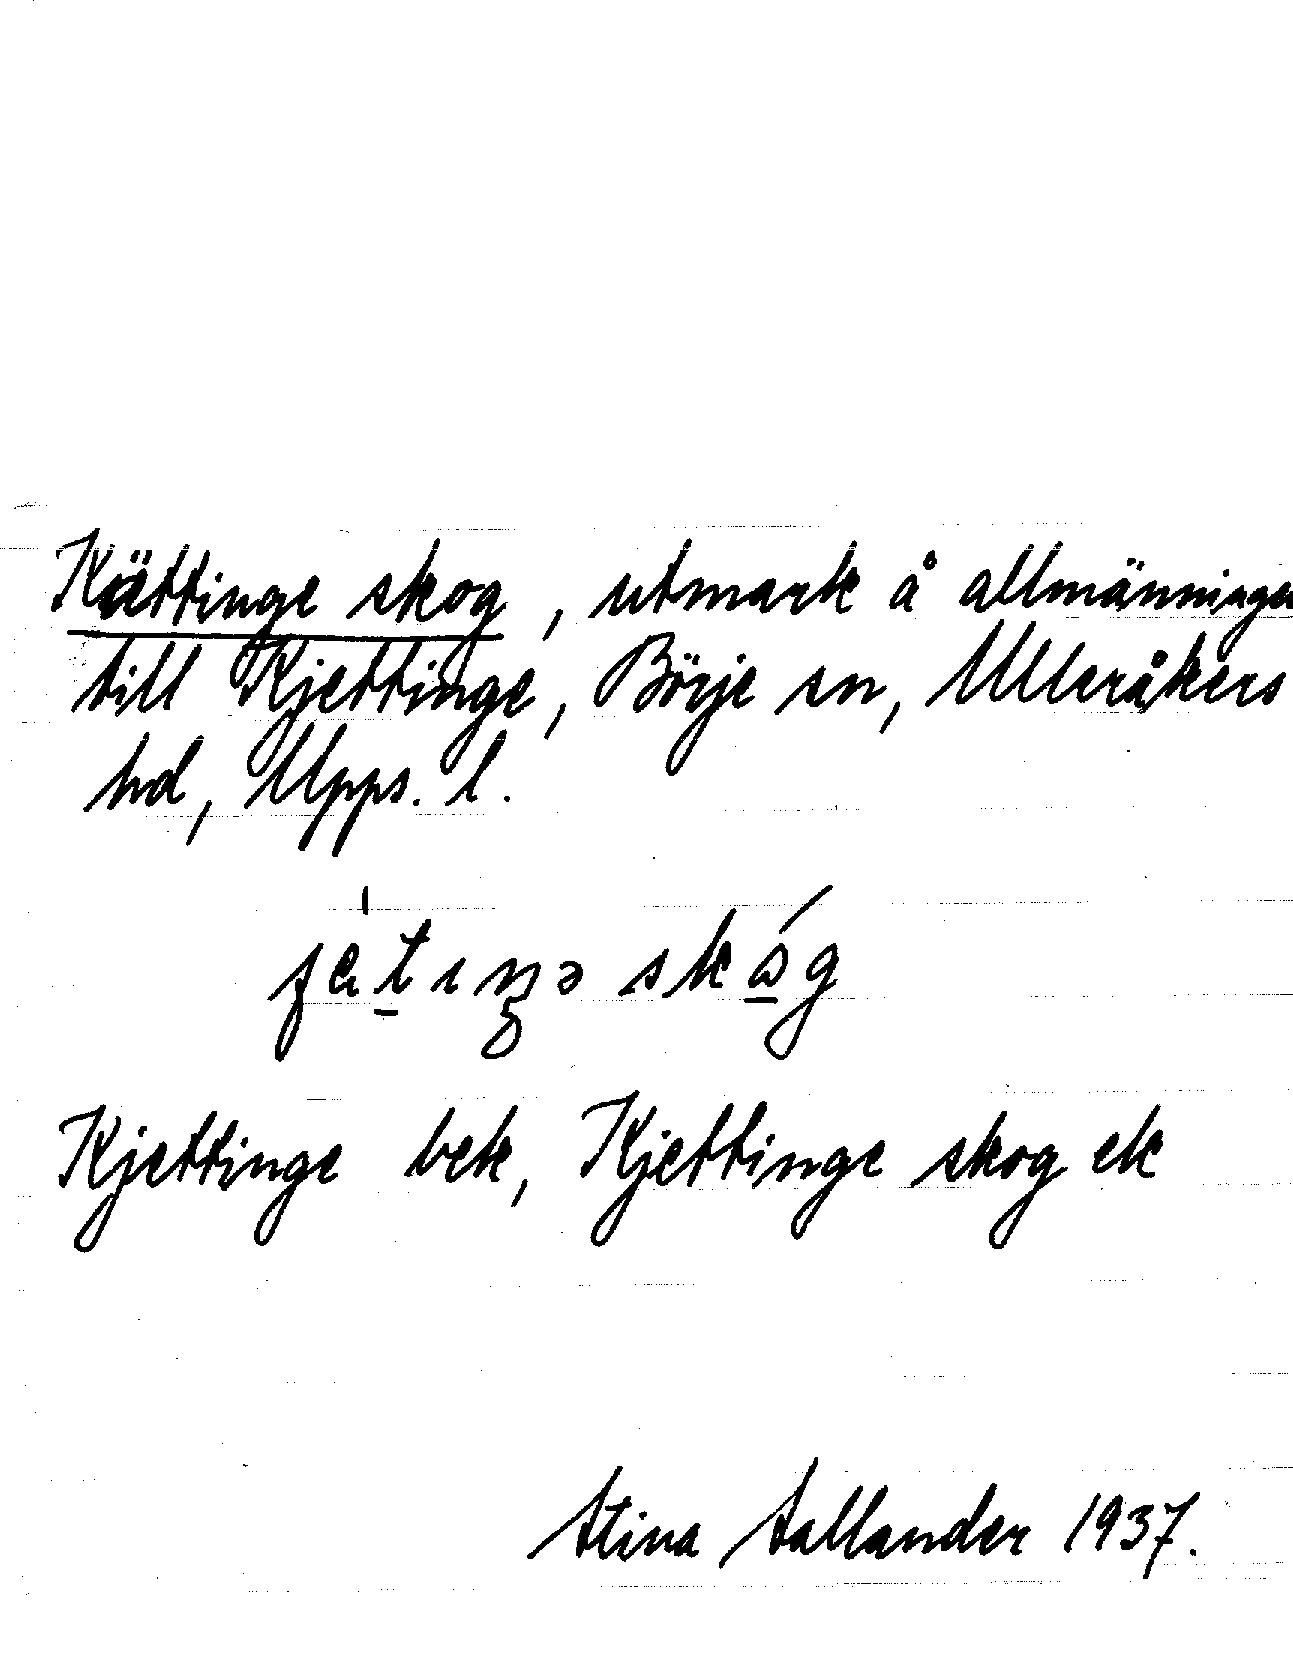 Kättinge skog, utmark å allmänningen
till Kjettinge, Börje sn, Ulleråkers
hd, Upps. l.
Kjettinge bek, Kjettinge skog ek
Stina Sallander 1937.